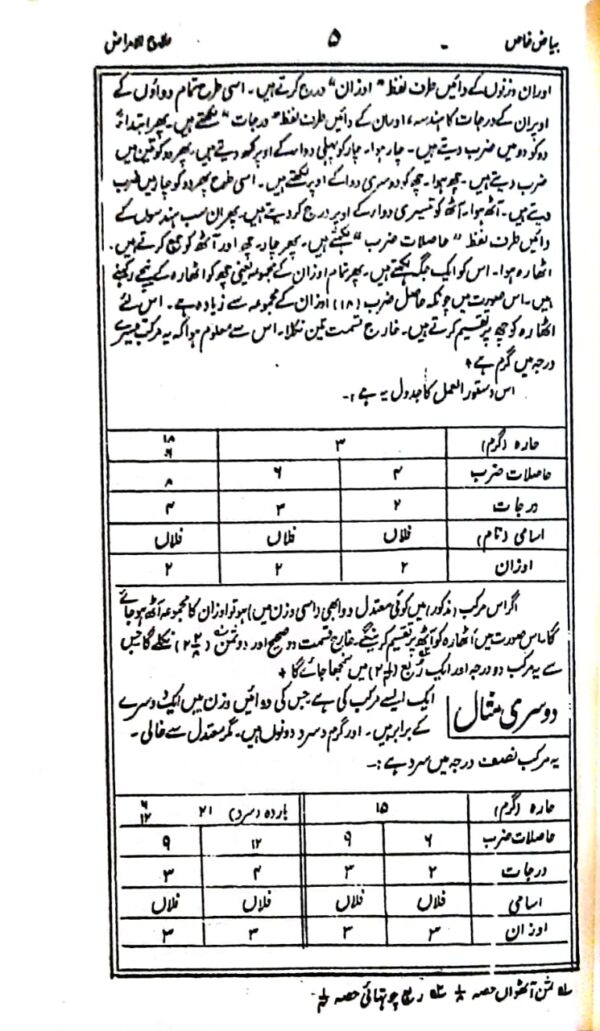 بیاض خاص ۵ علاج الامراض
اور ان وزنوں کے دائیں طرف لفظ "اوزان" درج کرتے ہیں۔ اسی طرح تمام دواؤں کے
اوپر ان کے درجات کا ہندسہ اور ان کے دائیں طرف لفظ "درجات" لکھتے ہیں۔ پھر ابتداءً
دو کو دو میں ضرب دیتے ہیں۔ چار ہوا۔ چار کو پہلی دوا کے اوپر لکھ دیتے ہیں۔ پھر دو کو تین میں
ضرب دیتے ہیں۔ چھ ہوا۔ چھ کو دوسری دوا کے اوپر لکھتے ہیں۔ اسی طرح پھر دو کو چار میں ضرب
دیتے ہیں۔ آٹھ ہوا۔ آٹھ کو تیسری دوا کے اوپر درج کر دیتے ہیں۔ پھر ان سب ہندسوں کے
دائیں طرف لفظ "حاصلات ضرب" لکھتے ہیں۔ پھر چار، چھ اور آٹھ کو جمع کرتے ہیں۔
اٹھارہ ہوا۔ اس کو ایک جگہ لکھتے ہیں۔ پھر تمام اوزان کے مجموعہ یعنی چھ کو اٹھارہ کے نیچے رکھتے
ہیں۔ اس صورت میں چونکہ حاصل ضرب (۱۸) اوزان کے مجموعہ سے زیادہ ہے۔ اس لئے
اٹھارہ کو چھ پر تقسیم کرتے ہیں۔ خارج قسمت تین نکلا۔ اس سے معلوم ہوا کہ یہ مرکب تیسرے
درجہ میں گرم ہے +
اس دستور العمل کا جدول یہ ہے :۔
حارہ (گرم) ۳ ۱۸ ۶
حاصلات ضرب ۴ ۶ ۸
درجات ۲ ۳ ۴
اسامی (نام) فلاں فلاں فلاں
اوزان ۲ ۲ ۲
اگر اس مرکب (مذکور) میں کوئی معتدل دوا بھی (اسی وزن میں) ہو تو اوزان کا مجموعہ آٹھ ہو جائے
گا۔ اس صورت میں اٹھارہ کو آٹھ پر تقسیم کریں گے۔ خارج قسمت دو صحیح اور دو ثمن (۲ ۲/۸) نکلے گا جس
سے یہ مرکب دو درجہ اور ایک ربع (۲ ۱/۴) میں سمجھا جائے گا +
دوسری مثال ایک ایسے مرکب کی ہے جس کی دوائیں وزن میں ایک دوسرے
کے برابر ہیں۔ اور گرم و سرد دونوں ہیں۔ مگر معتدل سے خالی۔
یہ مرکب نصف درجہ میں سرد ہے :۔
حارہ (گرم) ۱۵ باردہ (سرد) ۲۱ ۶ ۱۲
حاصلات ضرب ۶ ۹ ۱۲ ۹
درجات ۲ ۳ ۴ ۳
اسامی فلاں فلاں فلاں فلاں
اوزان ۳ ۳ ۳ ۳
ثمن آٹھواں حصہ ۱/۸ ربع چوتھائی حصہ ۱/۴